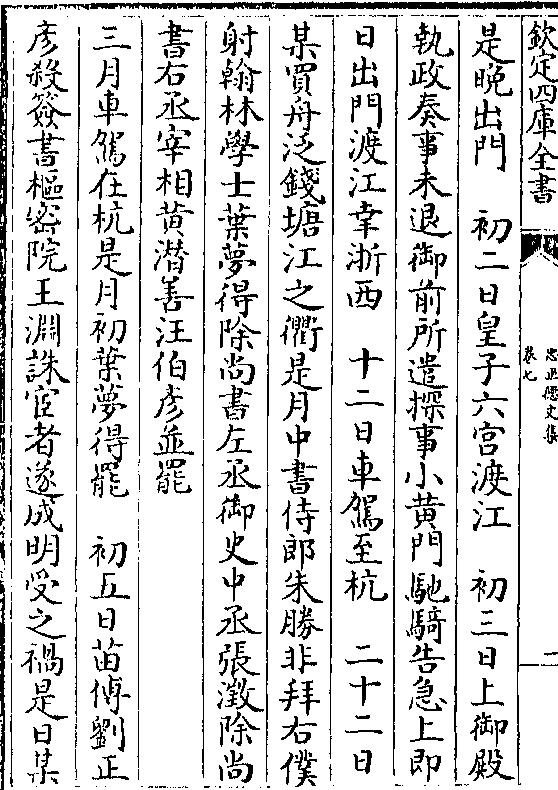 欽定四庫全書
忠正德文集
卷七
一
是晚出門　初二日皇子六宮渡江　初三日上御殿
執政奏事未退御前所遣探事小黄門馳騎告急上即
日出門渡江幸浙西　十二日車駕至杭　二十二日
某買舟泛錢塘江之衢是月中書侍郎朱勝非拜右僕
射翰林學士葉夢得除尚書左丞御史中丞張澂除尚
書右丞宰相黄潛善汪伯彦並罷
三月車駕在杭是月初葉夢得罷　初五日苗傅劉正
彦殺簽書樞密院王淵誅宦者遂成明受之禍是日某